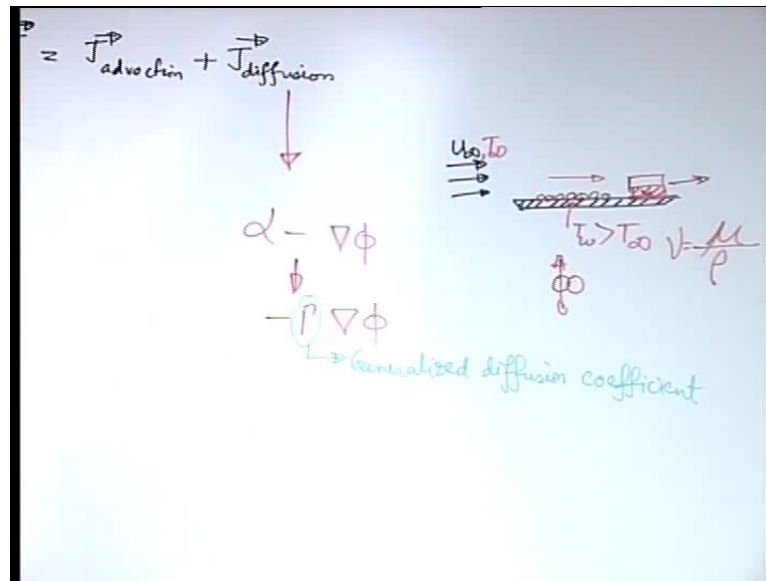 = J⃗ advection + J⃗ diffusion
U∞, T∞
α - ∇ϕ
Tω > T∞
ν = μ/ρ
- Γ ∇ϕ
Generalized diffusion coefficient